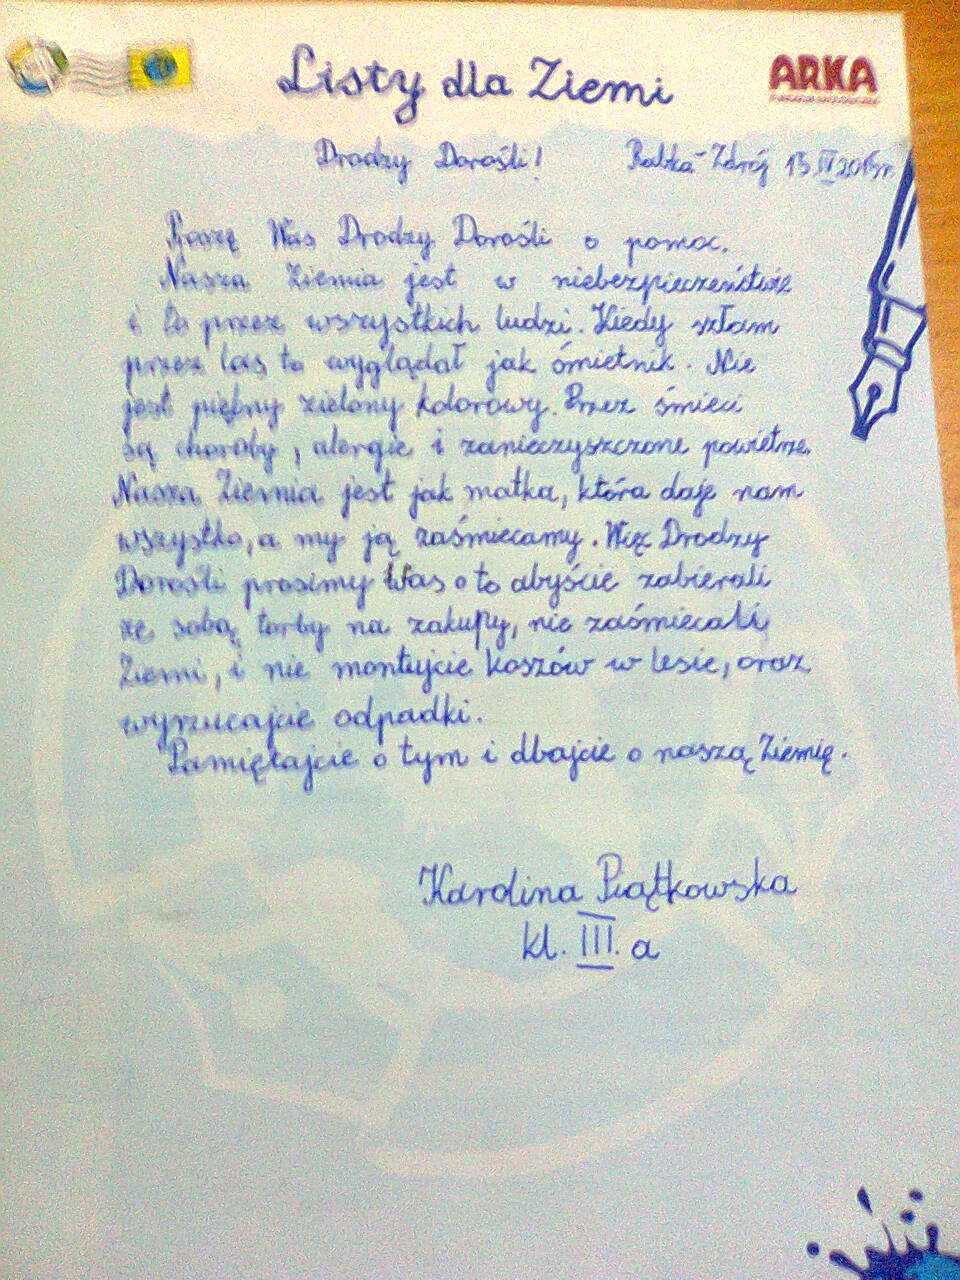 Listy dla Ziemi
ARKA
Drodzy Dorośli! Rabka-Zdrój 15 IV 2015r.
Proszę Was Drodzy Dorośli o pomoc.
Nasza Ziemia jest w niebezpieczeństwie
i to przez wszystkich ludzi. Kiedy szłam
przez las, to wyglądał jak śmietnik. Nie
jest piękny zielony kolorowy. Przez śmieci
są choroby, alergie i zanieczyszczone powietrze.
Nasza Ziemia jest jak matka, która daje nam
wszystko, a my ją zaśmiecamy. Więc Drodzy
Dorośli prosimy Was o to abyście zabierali
ze sobą torby na zakupy, nie zaśmiecali
Ziemi, i nie montujcie koszów w lesie, oraz
wyrzucajcie odpadki.
Pamiętajcie o tym i dbajcie o naszą Ziemię.
Karolina Piątkowska
kl. III. a